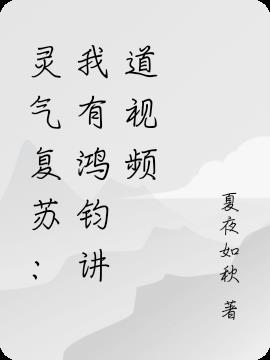 灵气复苏；
我有鸿钧讲
道视频
夏夜如秋 著